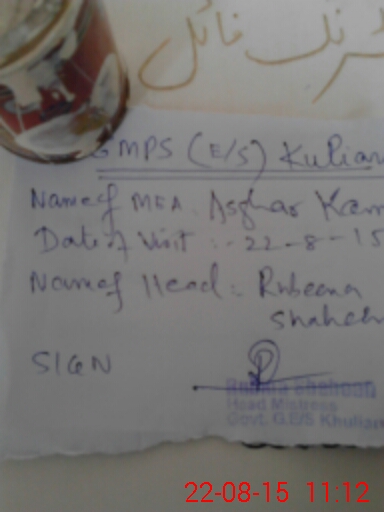 نک فائل
GMPS (E/S) Kulian
Name of MEA. Asghar Kam
Date of Visit :- 22-8-15
Name of Head: Rubeena
Shaheen
SIGN
Rubina Shaheen
Head Mistress
Govt. G.E/S Khulian
22-08-15 11:12